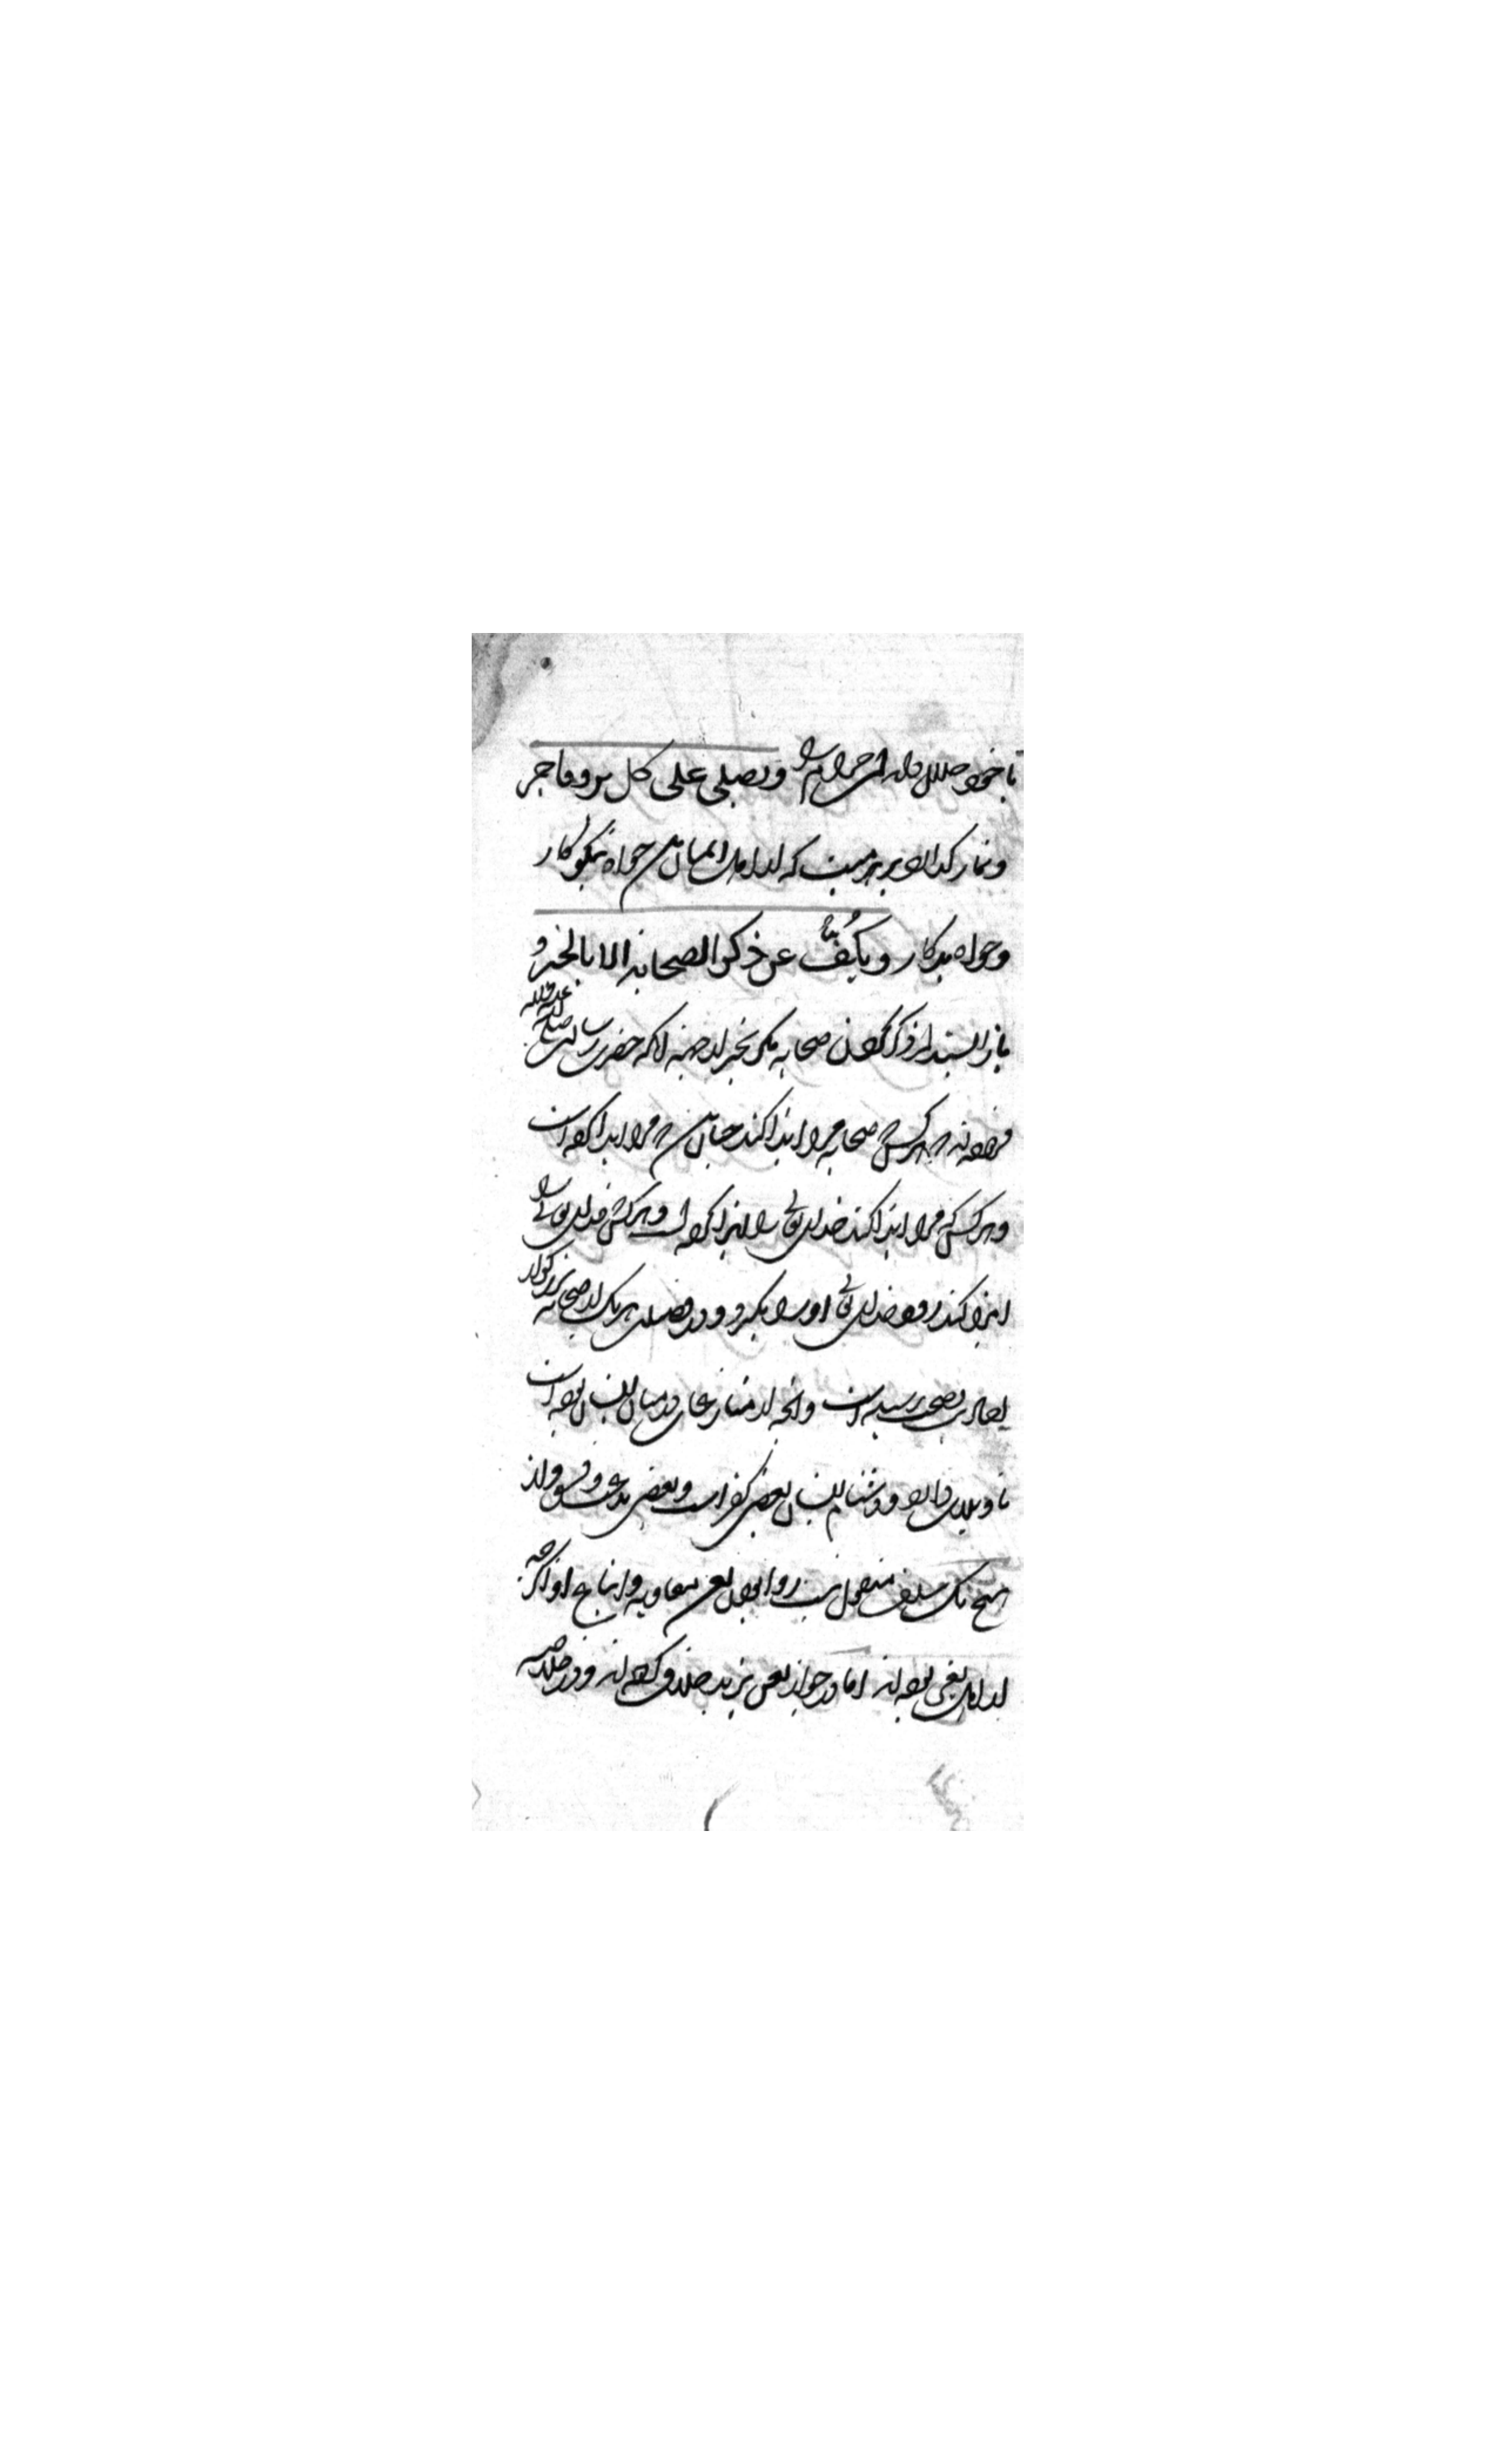 تا خود حلال داند این حرام را ویصلی علی کل بر وفاجر
ونماز گذارد بر هر میت که از اهل ایمان است خواه نیکوکار
وخواه بدکار ویکف عن ذکر الصحابة الا بالخیر و
باز ایستد از ذکر کردن صحابه مگر بخیر از جهة آنکه حضرت رسالت صلی الله علیه وآله
فرموده اند هر کس که صحابه مرا ایذا کند چنان است که مرا ایذا کرده است
وهر کس که مرا ایذا کند خدای تعالی را ایذا کرده است وهر کس خدای تعالی را
ایذا کند زود خدای تعالی او را بگیرد ودر فضیلت هر یک از صحابه بزرگوار
احادیث بصحت رسیده است وآنچه از منازعات در میان ایشان بوده است
تاویلات دارد ودشنام ایشان بعضی کفر است وبعضی بدعت وفسق واز
هیچ یک سلف منقول نیست روا بودن لعن معاویه واتباع او اگرچه
از اهل بغی بوده اند اما در جواز لعن یزید خلاف کرده اند ودر خلاصه